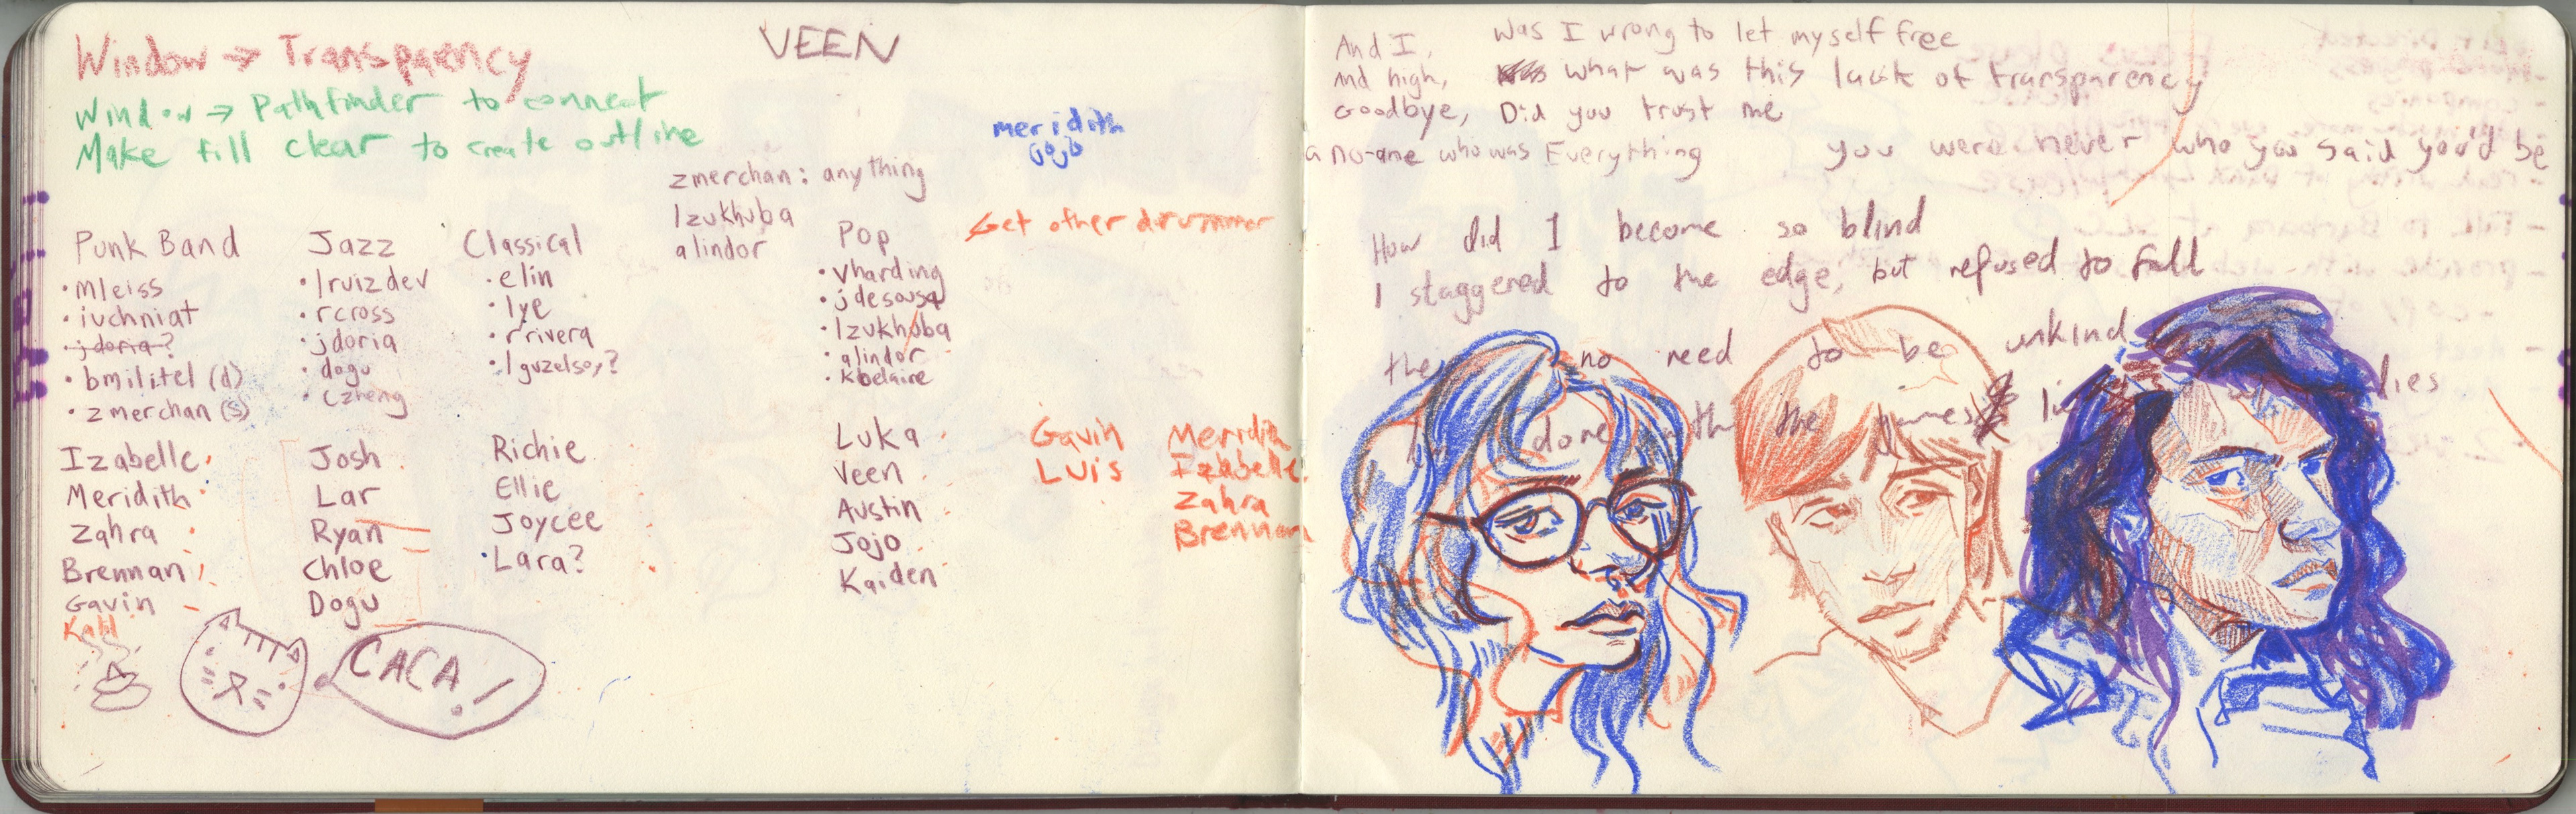 Window → Transparency
Window → Pathfinder to connect
Make fill clear to create outline
VEEN
meridith
Gojo
zmerchan: anything
lzukhuba
alindor
Get other drummer
Punk Band
• mleiss
• iuchniat
• jdoria?
• bmilitel (d)
• zmerchan (s)
Izabelle
Meridith
Zahra
Brennan
Gavin
Jazz
• lruizdev
• rcross
• jdoria
• dogu
• czheng
Josh
Lar
Ryan
Chloe
Dogu
Classical
• elin
• lye
• rrivera
• lguzelsoy?
Richie
Ellie
Joycee
• Lara?
Pop
• vharding
• jdesousa
• lzukhuba
• alindor
• kbelaire
Luka
Veen
Austin
Jojo
Kaiden
Gavin
Luis
Meridith
Izabelle
Zahra
Brennan
CACA!
And I, Was I wrong to let myself free
And high, what was this lack of transparency
Goodbye, Did you trust me
a no-one who was Everything you were never who you said you'd be
How did I become so blind
I staggered to the edge, but refused to fall
no need to be unkind
done with the games lies